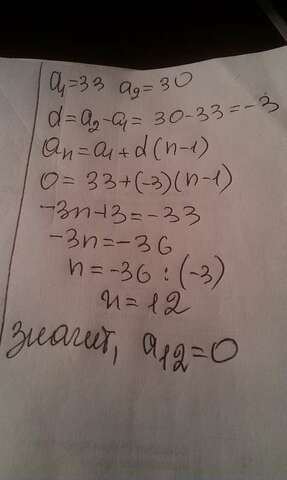 a₁=33 a₂=30
d=a₂-a₁= 30-33=-3
aₙ=a₁+d(n-1)
0=33+(-3)(n-1)
-3n+3=-33
-3n=-36
n=-36:(-3)
n=12
значит, a₁₂=0